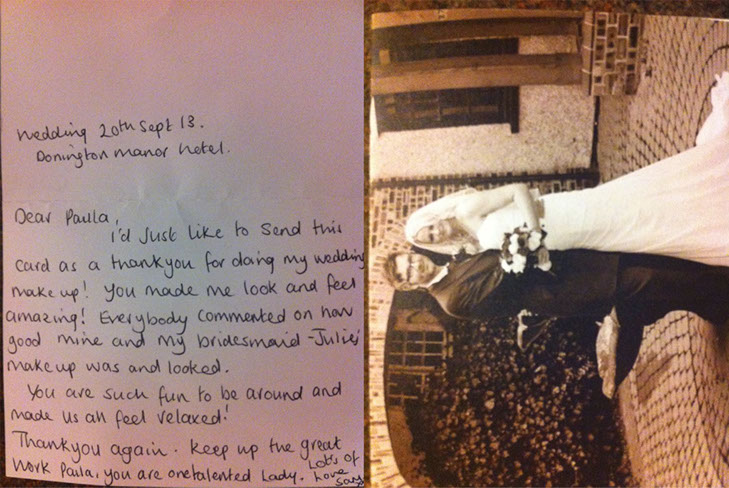 Wedding 20th Sept 13.
Donington manor hotel.
Dear Paula,
i'd Just like to Send this
card as a thankyou for doing my wedding
make up! You made me look and feel
amazing! Everybody commented on how
good mine and my bridesmaid - Julie's
makeup was and looked.
You are such fun to be around and
made us all feel relaxed!
Thankyou again. Keep up the great
work Paula, you are one talented Lady.
Lots of
Love